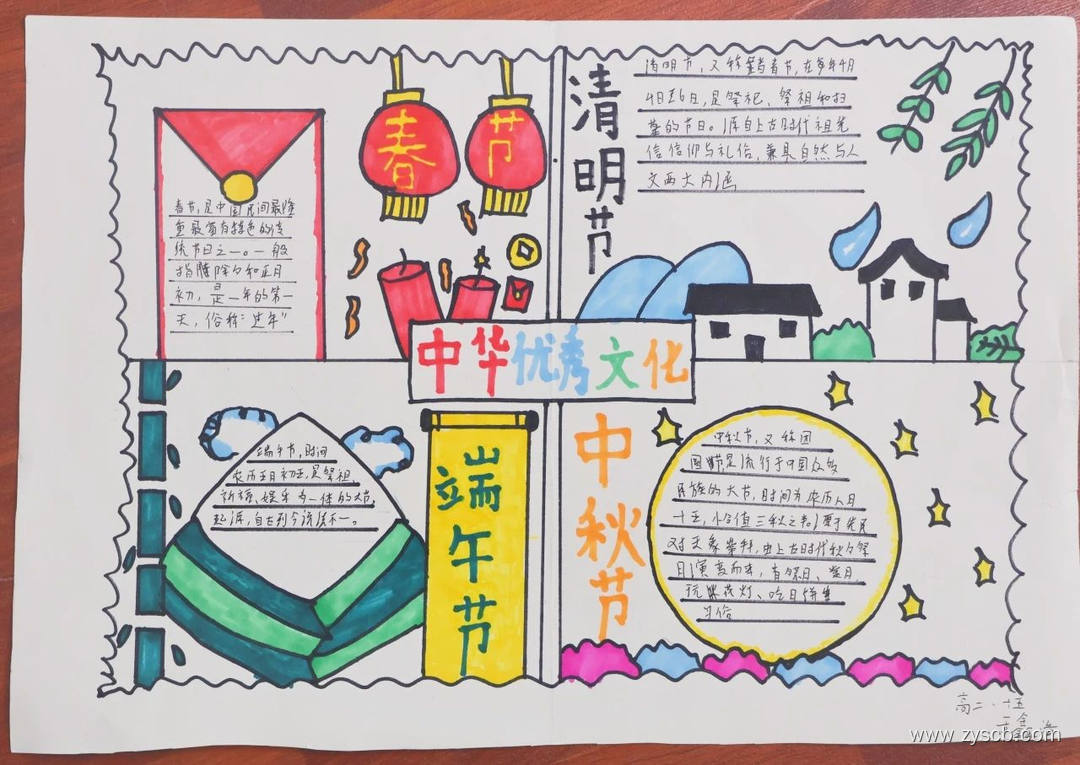 春节
春节,是中国民间最隆
重最富有特色的传
统节日之一。一般
指除夕和正月
初,是一年的第一
天,俗称"过年"
清明节
清明节,又称踏青节,在每年4月
4日至6日,是祭祀、祭祖和扫
墓的节日。源自上古时代祖先
信仰与礼俗,兼具自然与人
文两大内涵
中华优秀文化
端午节,时间
农历五月初五,是祭祖
祈福、娱乐为一体的大节,
起源,自古到今说法不一。
端午节
中秋节
中秋节,又称团
圆节是流行于中国众多
民族的大节,时间为农历八月
十五,恰值三秋之半。源于先民
对天象崇拜,由上古时代秋夕祭
月演变而来,有祭月、赏月
玩花灯、吃月饼等
习俗
高二·十五
www.zyscb.com